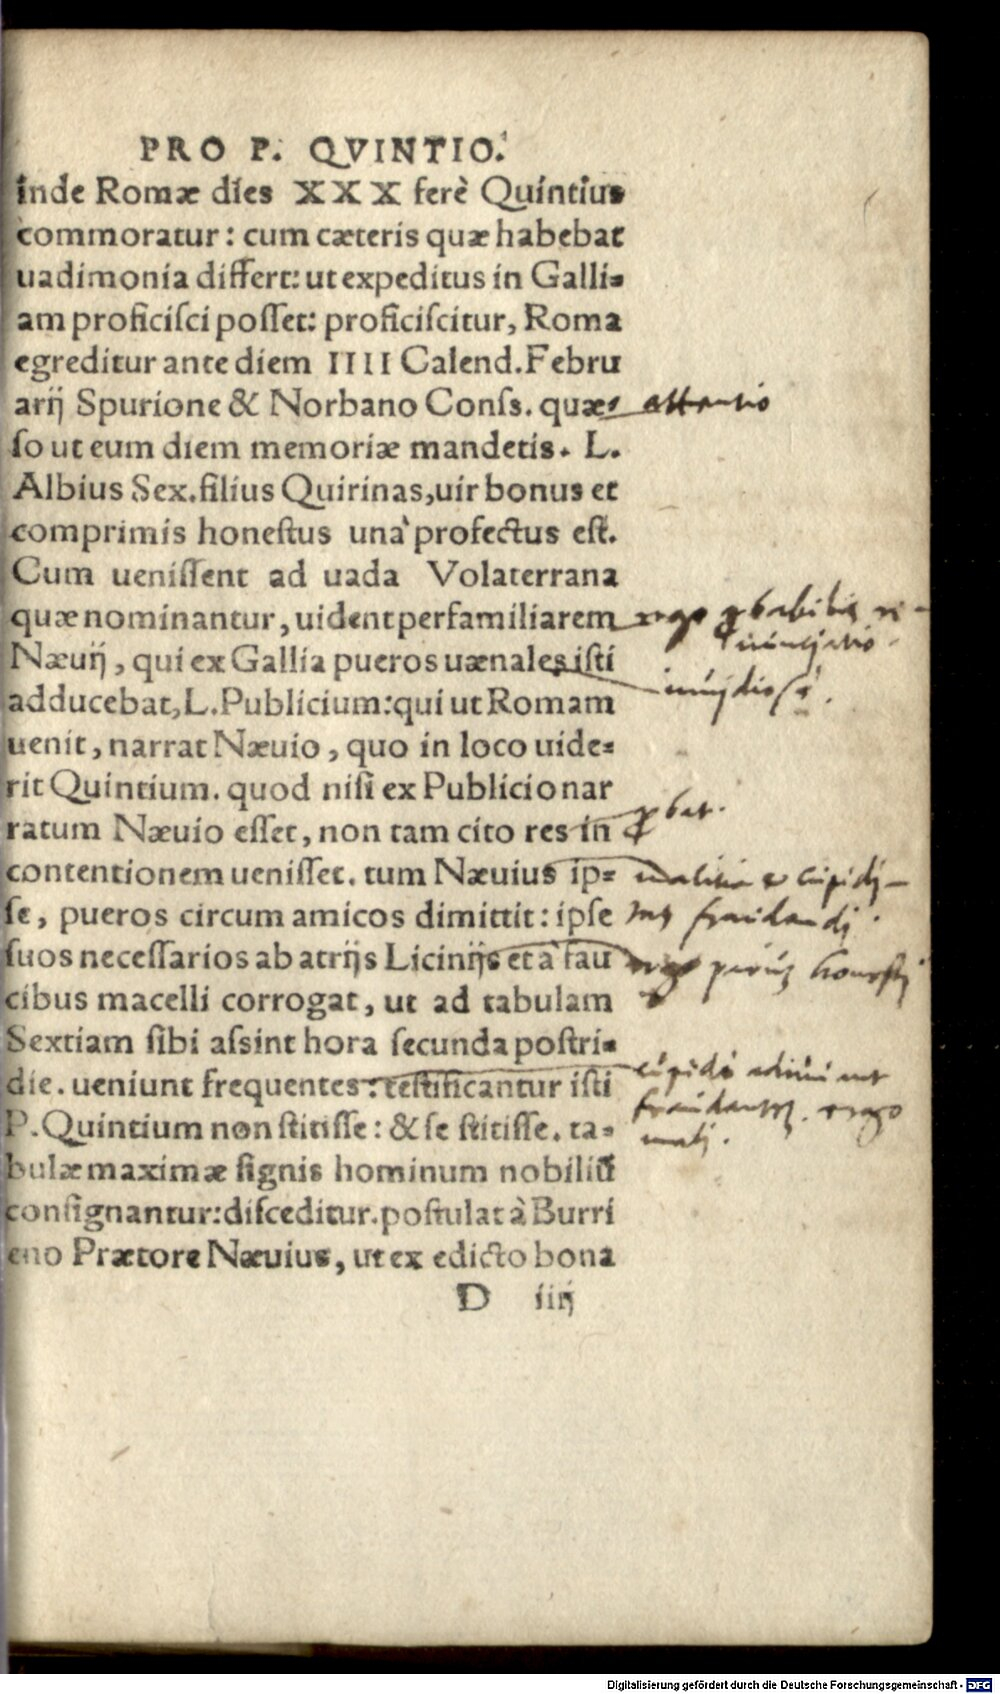 PRO P. QVINTIO.
inde Romæ dies XXX ferè Quintius
commoratur: cum cæteris quæ habebat
uadimonia differt: ut expeditus in Galli-
am proficiſci poſſet: proficiſcitur, Roma
egreditur ante diem IIII Calend. Febru
arij Spurione & Norbano Conſs. quæ-
attentio
ſo ut eum diem memoriæ mandetis. L.
Albius Sex. filius Quirinas, uir bonus et
comprimis honeſtus unà profectus eſt.
Cum ueniſſent ad uada Volaterrana
quæ nominantur, uident perfamiliarem
ergo ꝓbabilis
Næuij, qui ex Gallia pueros uænales iſti
adducebat, L. Publicium: qui ut Romam
uenit, narrat Næuio, quo in loco uide-
rit Quintium. quod niſi ex Publicio nar
ratum Næuio eſſet, non tam cito res in
ꝓbat.
contentionem ueniſſet. tum Næuius ip-
malitia & cupidi-
ſe, pueros circum amicos dimittit: ipſe
fraudandi.
ſuos neceſſarios ab atrijs Licinijs et à fau
cibus macelli corrogat, ut ad tabulam
Sextiam ſibi aſsint hora ſecunda poſtri-
die. ueniunt frequentes: teſtificantur iſti
P. Quintium non ſtitiſſe: & ſe ſtitiſſe. ta-
ergo
mali.
bulæ maximæ ſignis hominum nobiliũ
conſignantur: diſceditur. poſtulat à Burri
eno Prætore Næuius, ut ex edicto bona
D iiij
Digitalisierung gefördert durch die Deutsche Forschungsgemeinschaft - DFG